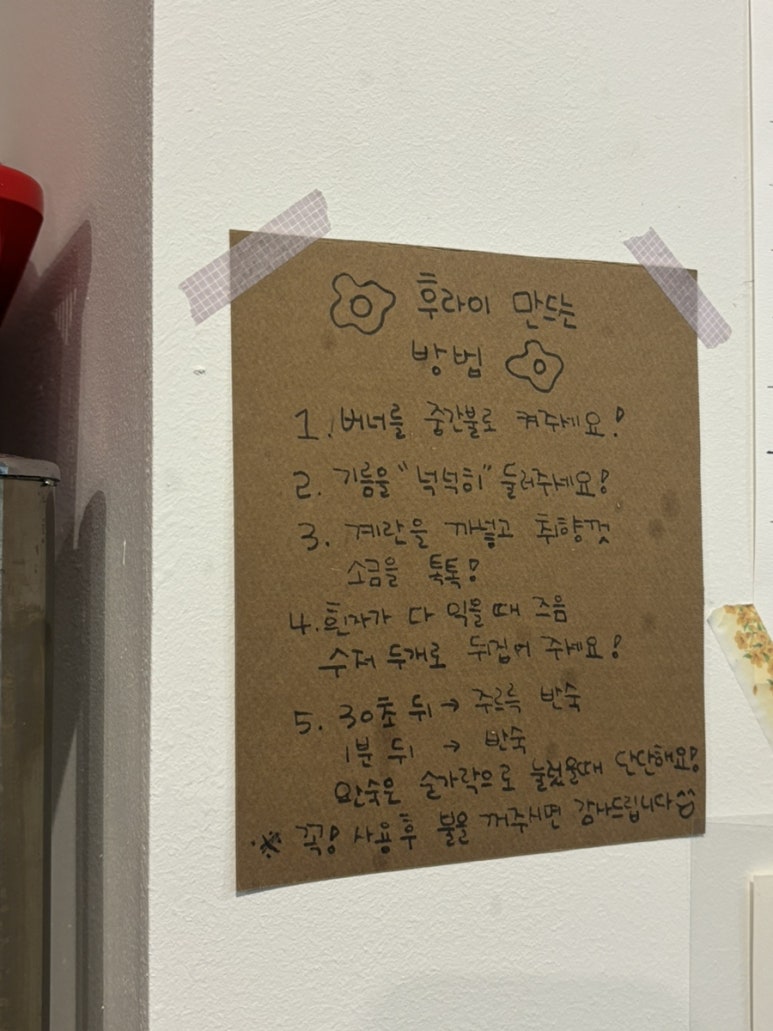 후라이 만드는
방법
1. 버너를 중간불로 켜주세요!
2. 기름을 "넉넉히" 둘러주세요!
3. 계란을 까넣고 취향껏
소금을 톡톡!
4. 흰자가 다 익을 때 즈음
수저 두개로 뒤집어 주세요!
5. 30초 뒤 → 주르륵 반숙
1분 뒤 → 반숙
완숙은 숟가락으로 눌렀을때 단단해요!
※ 꼭! 사용후 불을 꺼주시면 감사드립니다